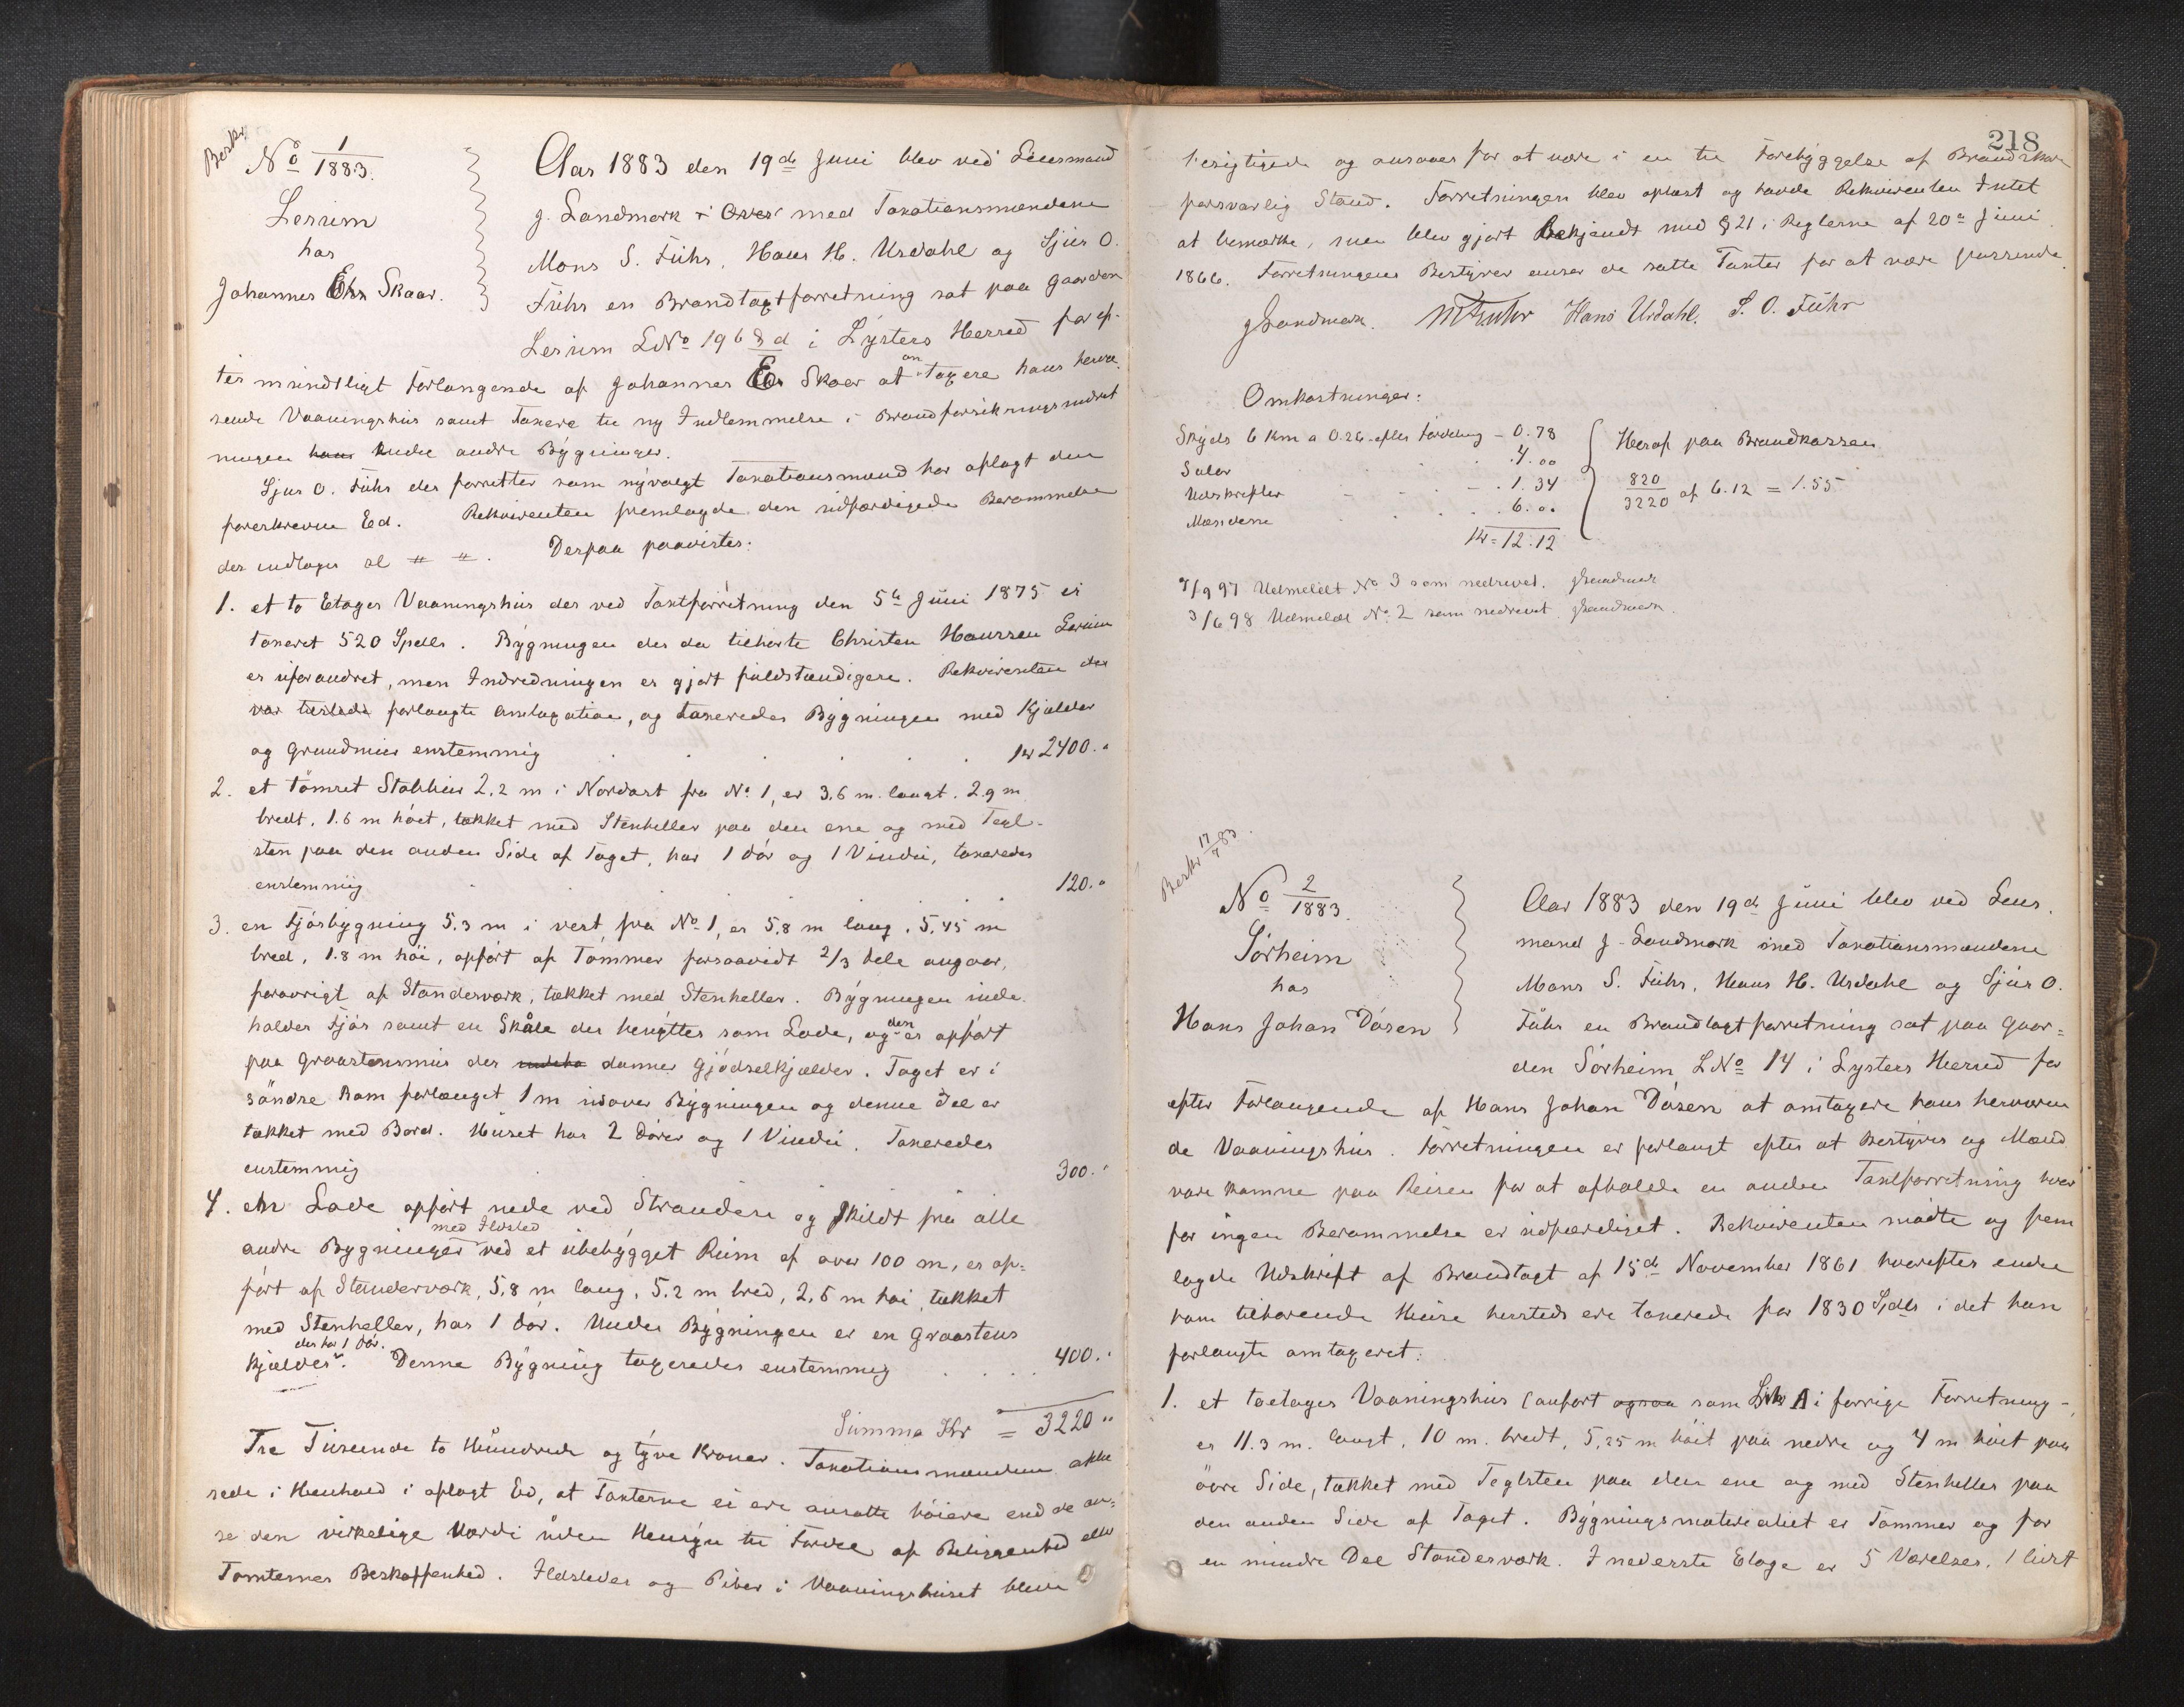 Beskr
No 1/1883.
Lerum
hos
Johannes Ehr Skaar.
Aar 1883 den 19de Juni blev ved Lensmand
J. Landmark med Taxationsmændene
Mons S. Fuhr, Hans H. Urdahl og Sjur O.
Fuhr en Brandtaxtforretning sat paa Gaarden
Lerum LNo 196 8 d i Lysters Herred for ef-
ter mundtligt Forlangende af Johannes Ehr Skaar at omtaxere hans herva-
rende Vaaningshus samt taxere til ny Indlemmelse i Brandforsikringsindret
ningen hans andre Bygninger.
Sjur O. Fuhr der forretter som nyvalgt Taxationsmand har aflagt den
foreskrevne Ed. Rekvirenten fremlagde den udfærdigede Berammelse
der indtages al " " . Derpaa paavistes:
1. et to Etages Vaaningshus der ved Taxtforretning den 5te Juni 1875 er
taxeret 520 Spdlr. Bygningen der da tilhørte Christen Hanssen Lerum
er uforandret, men Indredningen er gjort fuldstændigere. Rekvirenten der
var tilstede forlangte Omtaxation, og taxeredes Bygningen med Kjelder
og Grundmur enstemmig . . . . Kr 2400. "
2. et tømret Stabbur 2.2 m i Nordost fra No 1, er 3.6 m. langt. 2.9 m
bredt, 1.6 m høit, tækket med Stenheller paa den ene og med Tegl-
sten paa den anden Side af Taget, har 1 Dør og 1 Vindu, taxeredes
enstemmig . . . . 120. "
3. en Fjøsbygning 5.3 m i vest fra No 1, er 5.8 m lang, 5.45 m
bred, 1.8 m høi, opført af Tømmer forsaavidt 2/3 Dele angaar,
forøvrigt af Standerværk, tækket med Stenheller. Bygningen inde-
holder Fjøs samt en Skåle der benyttes som Lade, og den er opført
paa Graastensmur der danner Gjødselkjælder. Taget er i
søndre Ram forlænget 1 m udover Bygningen og denne Del er
tækket med Bord. Huset har 2 Dører og 1 Vindu. Taxeredes
enstemmig . . . 300. "
4. en Lade opført nede ved Stranden og skildt fra alle
andre Bygninger med Ildsted ved et ubebygget Rum af over 100 m, er op-
ført af Standerværk, 5.8 m lang, 5.2 m bred, 2.6 m høi, tækket
med Stenheller, har 1 Dør. Under Bygningen er en Graastens
Kjælder der har 1 Dør. Denne Bygning taxeredes enstemmig . . . . 400. "
Summa Kr = 3220 "
Tre Tusende to Hundrede og tyve Kroner. Taxationsmændene afhe
rede i Henhold i aflagt Ed, at Taxterne ei ere ansatte høiere end de an-
se den virkelige Værdi uden Hensyn til Fordel af Beliggenhed eller
Tomternes Beskaffenhed. Ildsteder og Piber i Vaaningshuset bleve
218
besigtigede og ansaaes for at være i en til Forebyggelse af Brandskade
forsvarlig Stand. Forretningen blev oplæst og havde Rekvirenten Intet
at bemærke, men blev gjort Bekjendt med § 21 i Reglerne af 20de Juni
1866. Forretningens Bestyrer anser de satte Taxter for at være passende.
JLandmark. MFuhr Hans Urdahl. S. O. Fuhr
Omkostninger:
Skyds 6 Km a 0.26 efter Fordeling – 0.78
Salær . . . . 4.00
Udskrifter – . . – . 1.34
Mændene . . . . 6.00
Kr = 12.12
Heraf paa Brandkassen
820/3220 af 6.12 = 1.55
7/9 97 Udmeldt No 3 som nedrevet. JLandmark
3/6 98 Udmeldt No 2 som nedrevet JLandmark.
Beskr 17/7 83.
No 2/1883.
Sørheim
hos
Hans Johan Døsen
Aar 1883 den 19de Juni blev ved Lens-
mand J. Landmark med Taxationsmændene
Mons S. Fuhr, Hans H. Urdahl og Sjur O.
Fuhr en Brandtaxtforretning sat paa Gaar-
den Sørheim LNo 14 i Lysters Herred for
efter Forlangende af Hans Johan Døsen at omtaxere hans herværen
de Vaaningshus. Forretningen er forlangt efter at Bestyrer og Mænd
vare komne paa Reisen for at afholde en anden Taxtforretning hvor
for ingen Berammelse er udfærdiget. Rekvirenten mødte og frem
lagde Udskrift af Brandtaxt af 15de November 1861 hvorefter endel
ham tilhørende Huse hersteds ere taxerede for 1830 Spdlr i det han
forlangte omtaxeret:
1. et toetages Vaaningshus (anført ogsaa som Litr A i forrige Forretning –,
er 11.3 m. langt, 10 m. bredt, 5.25 m høit paa nedre og 4 m høit paa
øvre Side, tækket med Teglsten paa den ene og med Stenheller paa
den anden Side af Taget. Bygningsmaterialiet er Tømmer og for
en mindre Del Standerværk. I nederste Etage er 5 Værelser, 1 lidet